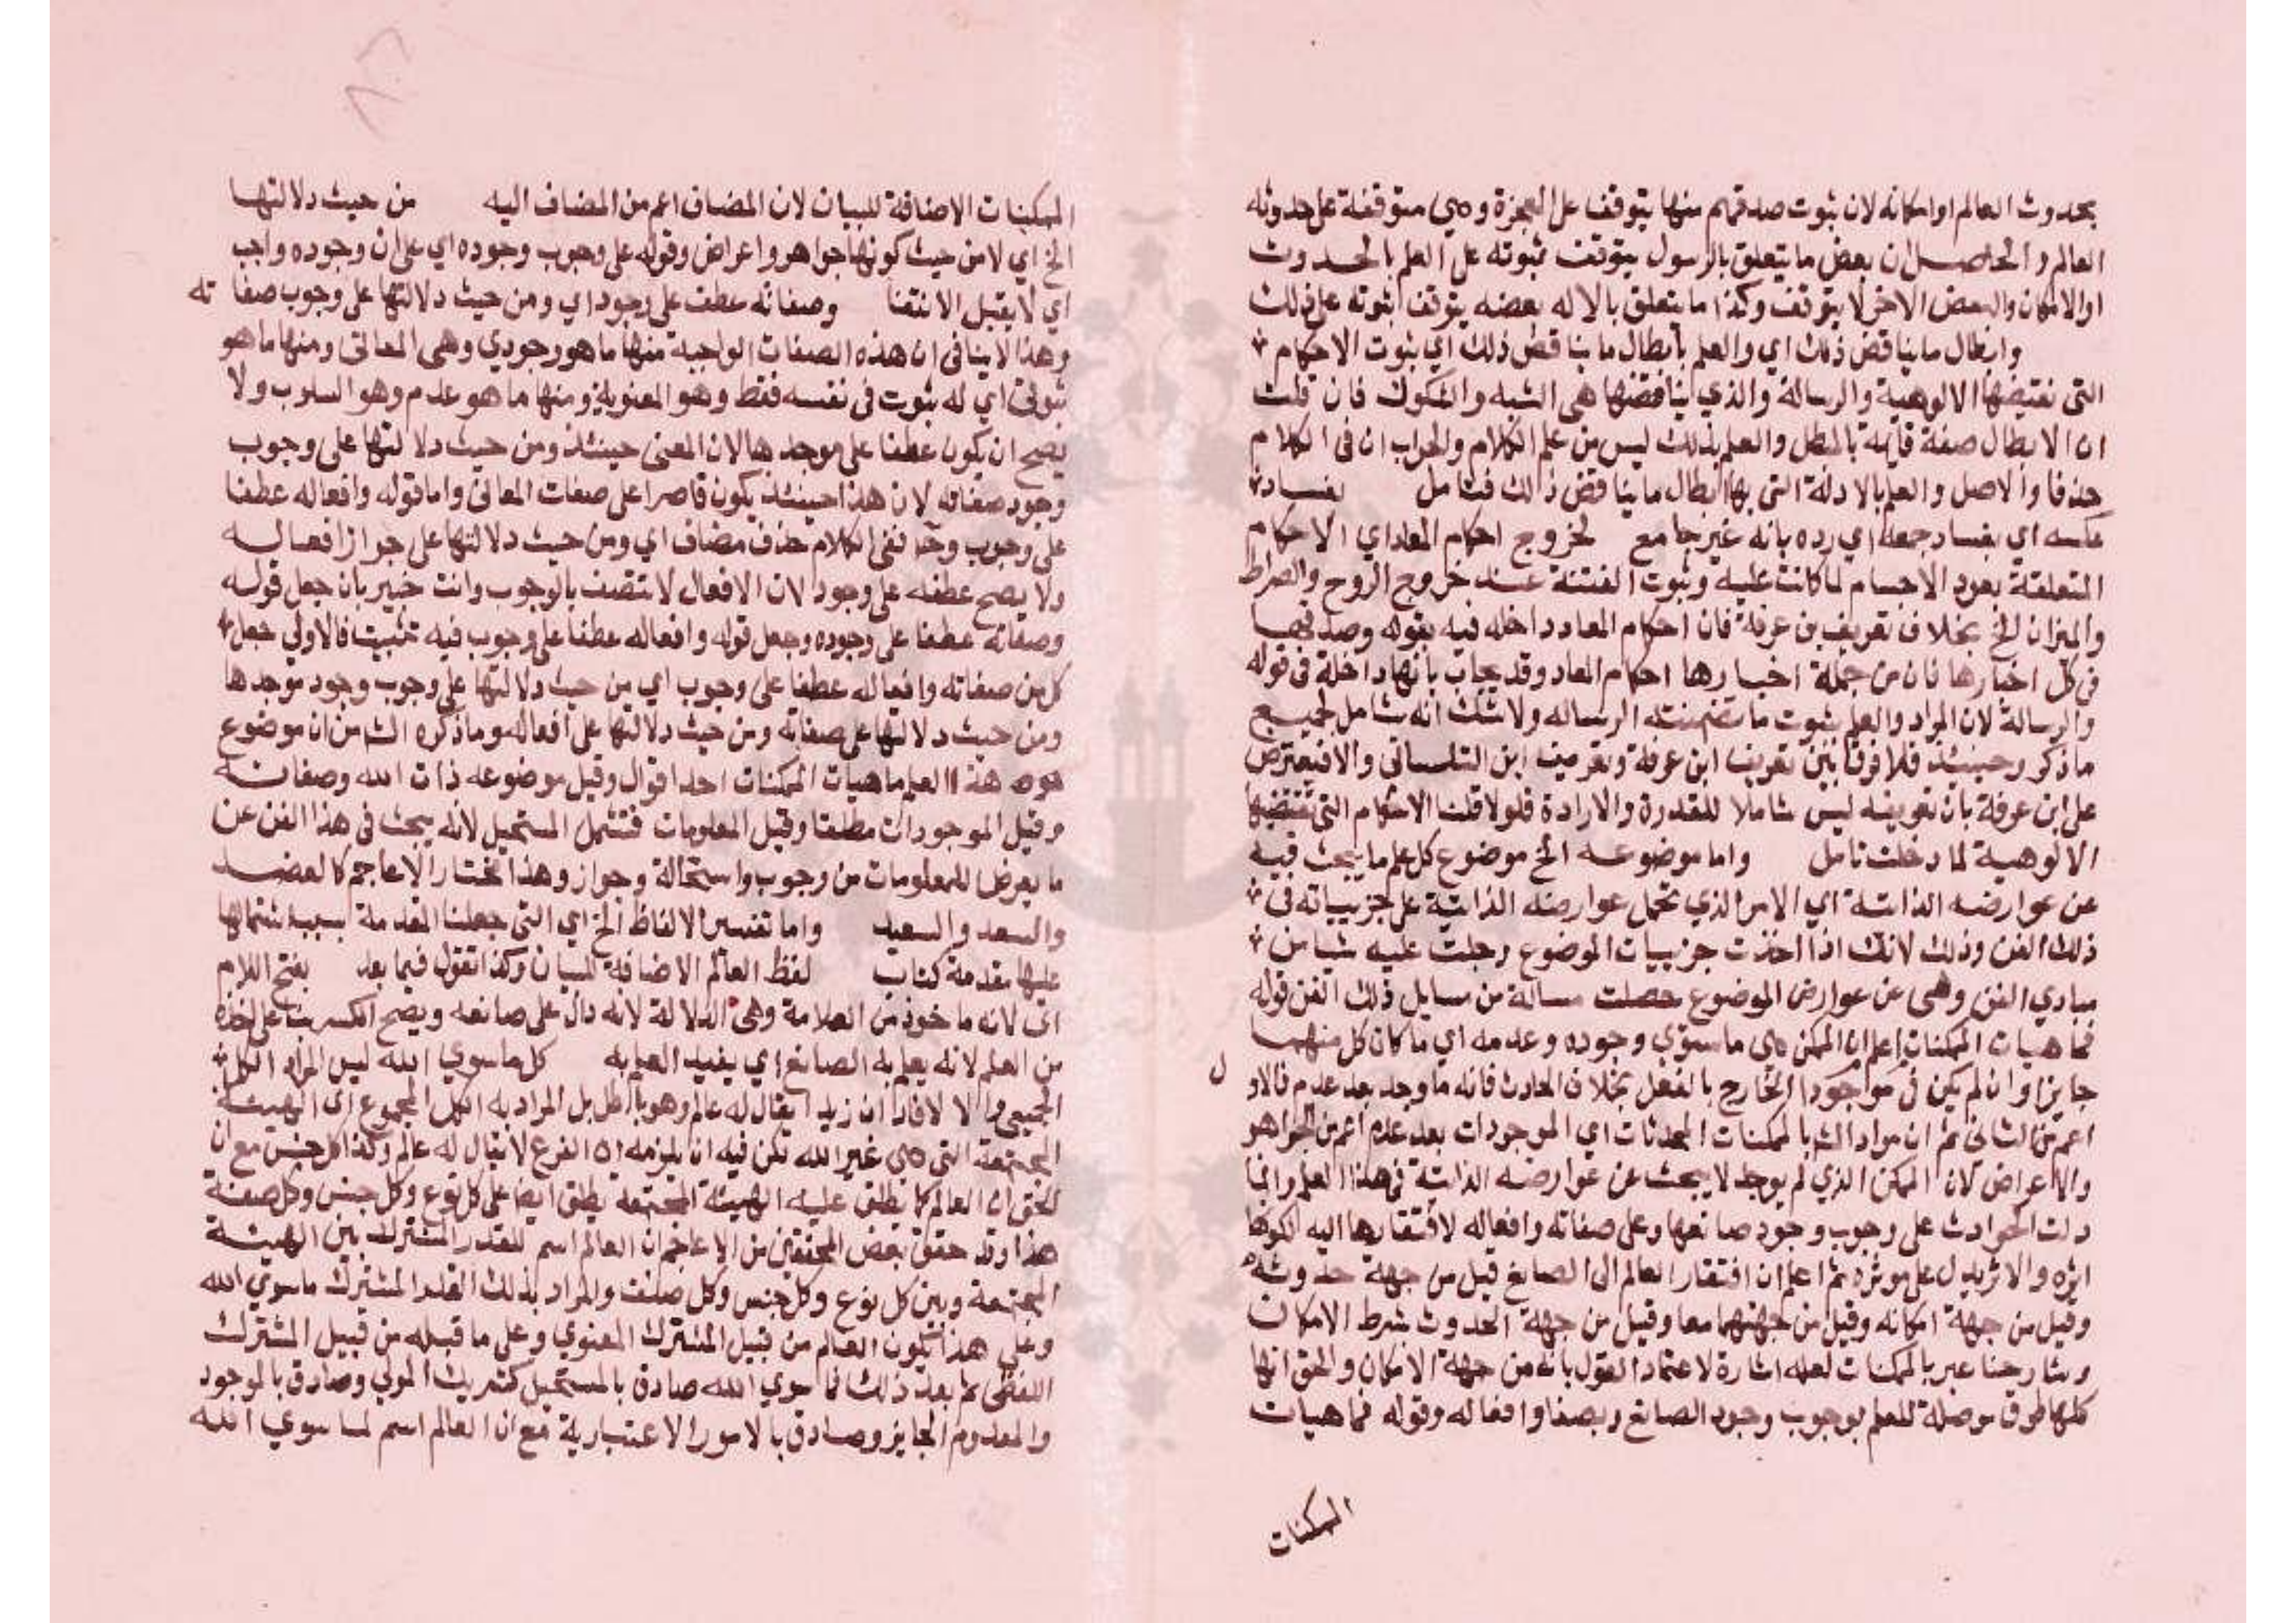 بحدوث العالم او امكانه لان ثبوت صدقهم منها يتوقف على المعجزة وهي متوقفة على حدوثه
العالم والحاصل ان بعض ما يتعلق بالرسول يتوقف ثبوته على العلم بالحدوث
او الامكان والبعض الاخر لا يتوقف وكذا ما يتعلق بالاله بعضه يتوقف ثبوته على ذلك
وابطال ما يناقض ذلك اي والعلم بابطال ما يناقض ذلك اي ثبوت الاحكام
التي تقتضيها الالوهية والرسالة والذي يناقضها هي الشبه والشكوك فان قلت
ان الابطال صفة قايمة بالمبطل والعلم بذلك ليس من علم الكلام والجواب ان في الكلام
حذفا والاصل والعلم بالادلة التي بها ابطال ما يناقض ذالك فتامل بفساد
عكسه اي بفساد جمعه اي رده بانه غير جامع لخروج احكام المعاد اي الاحكام
المتعلقة بعود الاجسام لما كانت عليه وثبوت الفتنة عند خروج الروح والصراط
والميزان الخ بخلاف تعريف بن عرفة فان احكام المعاد داخله فيه بقوله وصدقها
في كل اخبارها فان من جملة اخبارها احكام المعاد وقد يجاب بانها داخلة في قوله
والرسالة لان المراد والعلم بثبوت ما تضمنته الرساله ولا شك انه شامل لجميع
ما ذكر وحينئذ فلا فرق بين تعريف ابن عرفة وتعريف ابن التلمساني والا فيعترض
على ابن عرفة بان تعريفه ليس شاملا للقدرة والارادة فلولا قلنا الاحكام التي تقتضيها
الالوهية لما دخلت تامل واما موضوعه الخ موضوع كل علم ما يبحث فيه
عن عوارضه الذاتية اي الامر الذي تحمل عوارضه الذاتية على جزيياته في
ذلك الفن وذلك لانك اذا اخذت جزييات الموضوع وحملت عليه شيا من
مبادي الفن وهي من عوارض الموضوع حصلت مسالة من مسايل ذلك الفن قوله
فماهيات الممكنات اعلم ان الممكن هي ما ستوي وجوده وعدمه اي ما كان كل منهما
جايزا وان لم يكن في موجودا الخارج بالفعل بخلاف الحادث فانه ما وجد بعد عدم فالاو ل
اعم من الثاني ثم ان مراد الش بالممكنات المحدثات اي الموجودات بعد عدم اعم من الجواهر
والاعراض لان الممكن الذي لم يوجد لا يبحث عن عوارضه الذاتية في هذا العلم وانما
دلت الحوادث على وجوب وجود صانعها وعلى صفاته وافعاله لافتقارها اليه لكونها
اثره والاثر يدل على موثره ثم اعلم ان افتقار العالم الى الصانع قيل من جهة حدوثه
وقيل من جهة امكانه وقيل من جهتهما معا وقيل من جهة الحدوث بشرط الامكان
وشارحنا عبر بالممكنات لعله اشارة لاعتماد القول بانه من جهة الامكان والحق انها
كلها طرق موصلة للعلم بوجوب وجود الصانع وبصفا وافعاله وقوله فماهيات
الممكنات
الممكنات الاضافة للبيان لان المضاف اعم من المضاف اليه من حيث دلالتها
الخ اي لا من حيث كونها جواهر واعراض وقوله على وجوب وجوده اي على ان وجوده واجب
اي لا يقبل الانتفا وصفاته عطف على وجود اي ومن حيث دلالتها على وجوب صفا ته
وهذا لا ينافي ان هذه الصفات الواجبة منها ما هو وجودي وهي المعاني ومنها ما هو
ثبوتي اي له ثبوت في نفسه فقط وهو المعنوية ومنها ما هو عدم وهو السلوب ولا
يصح ان يكون عطفا على موجدها لان المعنى حينئذ ومن حيث دلالتها على وجوب
وجود صفاته لان هذا حينئذ يكون قاصرا على صفات المعاني واما قوله وافعاله عطفا
على وجوب وحـ ففي الكلام حذف مضاف اي ومن حيث دلالتها على جواز افعاله
ولا يصح عطفه على وجود لان الافعال لا تتصف بالوجوب وانت خبير بان جعل قوله
وصفاته عطفا على وجوده وجعل قوله وافعاله عطفا على وجوب فيه تشتيت فالاولى جعل
كل من صفاته وافعاله عطفا على وجوب اي من حيث دلالتها على وجوب وجود موجدها
ومن حيث دلالتها على صفاته ومن حيث دلالتها على افعاله وما ذكره الش من ان موضوع
هذا العلم ماهيات الممكنات احد اقوال وقيل موضوعه ذات الله وصفاته
وقيل الموجودات مطلقا وقيل المعلومات فتشمل المستحيل لانه يبحث في هذا الفن عن
ما يعرض للمعلومات من وجوب واستحالة وجواز وهذا مختار الاعاجم كالعضد
والسعد والسعيد واما تفسير الالفاظ الخ اي التي جعلنا المقدمة بسبب اشتمالها
عليها مقدمة كتاب لفظ العالم الاضافة للبيان وكذا تقول فيما بعد بفتح اللام
اي لانه ماخوذ من العلامة وهي الدلالة لانه دال على صانعه ويصح الكسر بنا على اخذه
من العلم لانه يعلم به الصانع اي يفيد العلم به كل ما سوي الله ليس المراد الكل
الجميعي والا لافاد ان زيدا يقال له عالم وهو باطل بل المراد به الكل المجموع اي الهيئة
المجتمعة التي هي غير الله لكن فيه ان يلزمه ان الفرع لا يقال له عالم وكذا كل جنس مع ان
الحق ان العالم كما يطلق عليه الهيئة المجتمعة يطلق ايضا على كل نوع وكل جنس وكل صنف
هذا وقد حقق بعض المحققين من الاعاجم ان العالم اسم للقدر المشترك بين الهيئة
المجتمعة وبين كل نوع وكل جنس وكل صنف والمراد بذلك القدر المشترك ما سوي الله
وعلى هذا يكون العالم من قبيل المشترك المعنوي وعلى ما قبله من قبيل المشترك
اللفظي ثم بعد ذلك فما سوي الله صادق بالمستحيل كشريك المولى وصادق بالموجود
والمعدوم الجايز وصادق بالامور الاعتبارية مع ان العالم اسم لما سوي الله